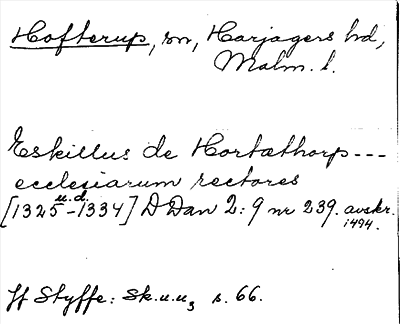 Hofterup, sn, Harjagers hd,
Malm. l.
Eskillus de Hortathorp ---
ecclesiarum rectores
[1325 u.d. -1334] D Dan 2: 9 nr 239. avskr. 1494.
Jf Styffe: Sk.u.u3 s. 66.